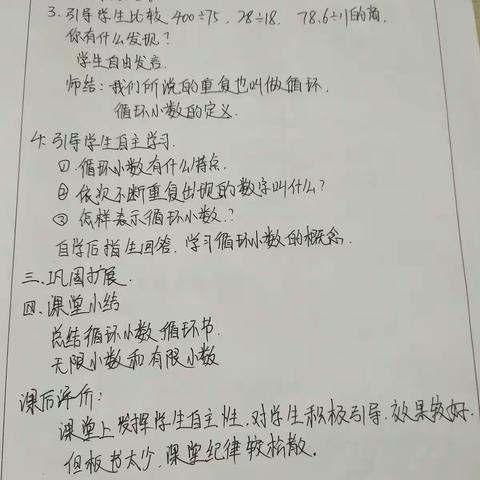 3. 引导学生比较 400÷75、28÷18、78.6÷11的商,
你有什么发现?
学生自由发言.
师结:我们所说的重复也叫做循环.
循环小数的定义.
4. 引导学生自主学习.
① 循环小数有什么特点.
② 依次不断重复出现的数字叫什么?
③ 怎样表示循环小数.?
自学后指生回答.学习循环小数的概念.
三、巩固扩展.
四、课堂小结
总结循环小数.循环节.
无限小数和有限小数
课后评价:
课堂上发挥学生自主性,对学生积极引导.效果较好.
但板书太少,课堂纪律较松散.